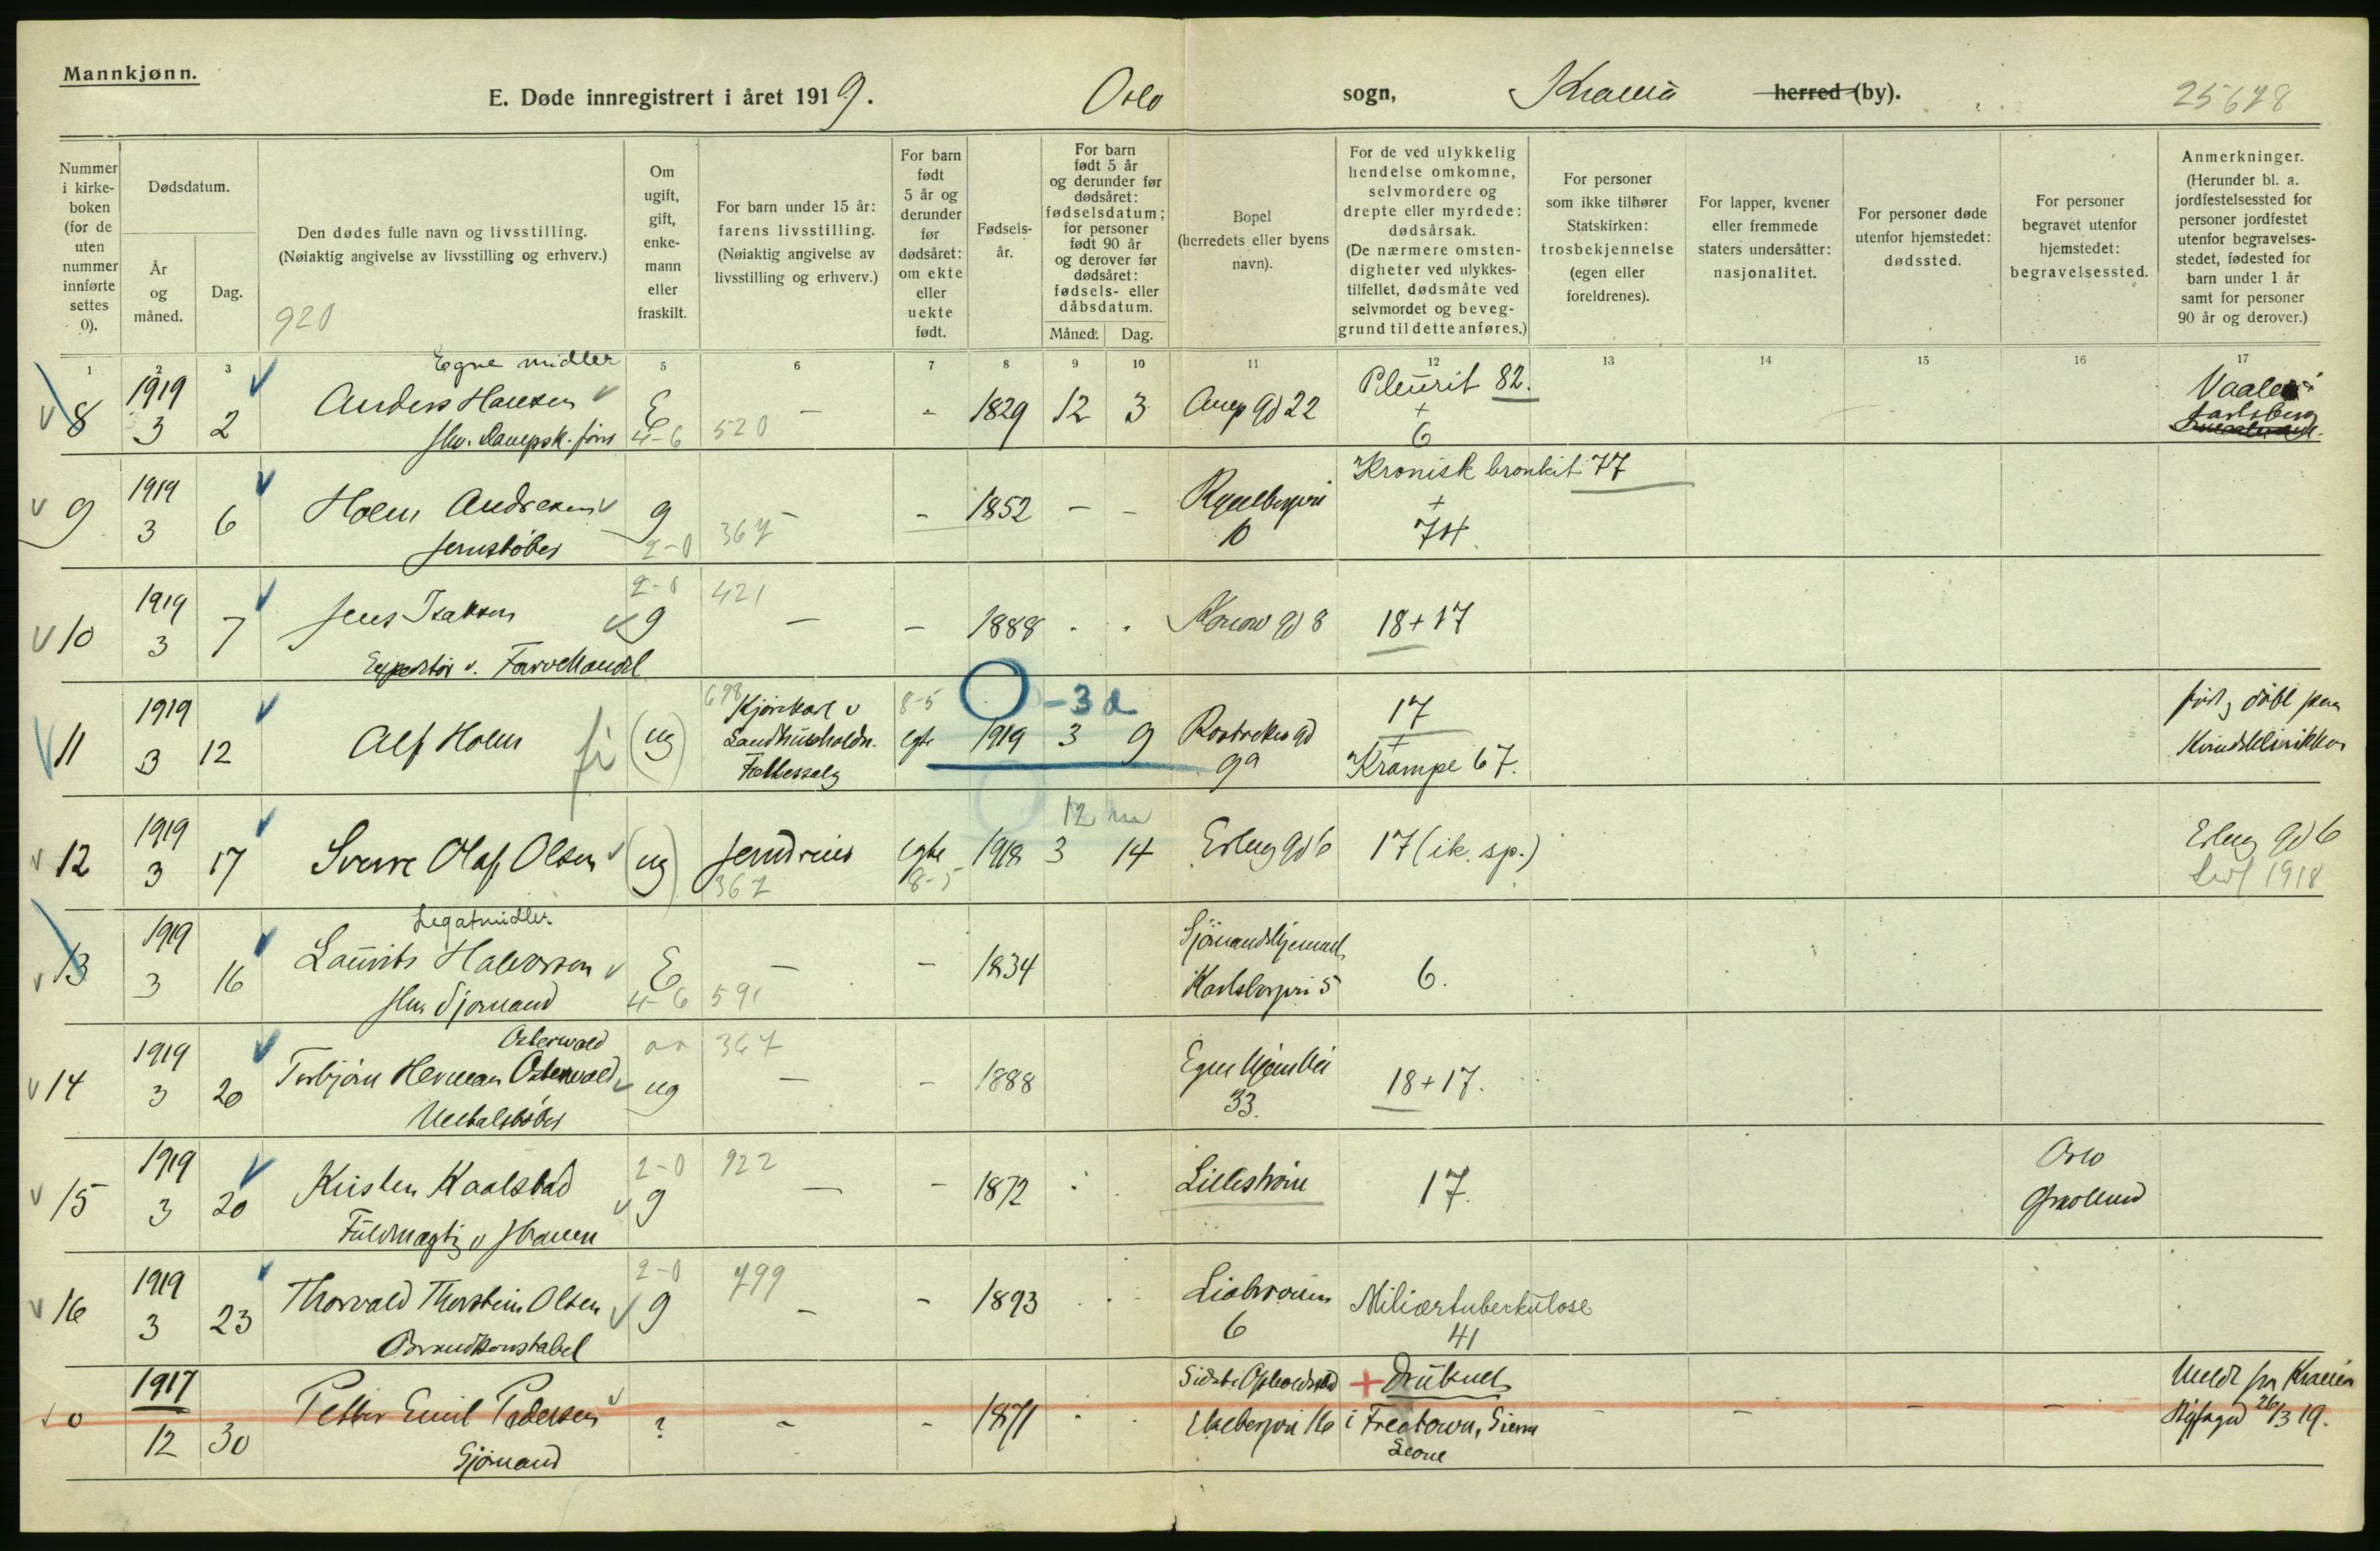 Mannkjønn.
E. Døde innregistrert i året 1919.
Oslo sogn, Krania herred (by).
25628
Nummer i kirkeboken (for de uten nummer innførte settes 0).
Dødsdatum.
År og måned.
Dag.
Den dødes fulle navn og livsstilling.
(Nøiaktig angivelse av livsstilling og erhverv.)
920
Om ugift, gift, enkemann eller fraskilt.
For barn under 15 år: farens livsstilling.
(Nøiaktig angivelse av livsstilling og erhverv.)
For barn født 5 år og derunder før dødsåret: om ekte eller uekte født.
Fødselsår.
For barn født 5 år og derunder før dødsåret: fødselsdatum; for personer født 90 år og derover før dødsåret: fødsels- eller dåbsdatum.
Måned.
Dag.
Bopel (herredets eller byens navn).
For de ved ulykkelig hendelse omkomne, selvmordere og drepte eller myrdede: dødsårsak.
(De nærmere omstendigheter ved ulykkestilfellet, dødsmåte ved selvmordet og beveggrund til dette anføres.)
For personer som ikke tilhører Statskirken: trosbekjennelse (egen eller foreldrenes).
For lapper, kvener eller fremmede staters undersåtter: nasjonalitet.
For personer døde utenfor hjemstedet: dødssted.
For personer begravet utenfor hjemstedet: begravelsessted.
Anmerkninger.
(Herunder bl. a. jordfestelsessted for personer jordfestet utenfor begravelsesstedet, fødested for barn under 1 år samt for personer 90 år og derover.)
1 2 3 5 6 7 8 9 10 11 12 13 14 15 16 17
Egne midler
8 1919 3 2 Anders Hansen E - - 1829 12 3 gd 22 Pleurit 82. Vaaler
fhv. 4-6 520 + 6 Jarlsberg
9 1919 3 6 Holm Andresen g - - 1852 - - Kronisk bronkit 77
Jernstøber 2-0 367 10 + 74.
2-0 421
10 1919 3 7 Jens Isaksen g - - 1888 Konow gd 8 18+17
Expeditør v. Farvehandel
698 Kjørekarl v 8-5 O-3 d
11 1919 3 12 Alf Holm fi (ug) Landhusholdn. egte 1919 3 9 Rostocks gd 17 født, døbt paa
Fællessalg 9a + Krampe 67. Kvindeklinikken
12 1919 3 17 Sverre Olaf Olsen (ug) egte 1918 3 14 gd 6 17 (ik. sp.) gd 6
367 8-5 1918
Legatmidler
13 1919 3 16 Laurits Halvorsen E - - 1834 Sjømandshjemmet 6.
fhv. Sjømand 4-6 591 5
Osterwald 367
14 1919 3 20 Torbjørn Herman Osterwald ug - - 1888 Egne Hjem Vei 18+17.
Metalstøber 33.
2-0 922
15 1919 3 20 Kristen Kaalstad g - - 1872 Lillestrøm 17. Oslo
Fuldmægtig v
2-0 799
16 1919 3 23 Thorvald Thorstein Olsen g - - 1893 Miliærtuberkulose
Brandkonstabel 6 41
0 1917 12 30 Petter Emil Pedersen ? - - 1871 Sidste Opholdssted + Druknet - - - - Meldt fra Krania
Sjømand Ekebergvei 16 i Freetown, Sierra Leone 26/3 19.